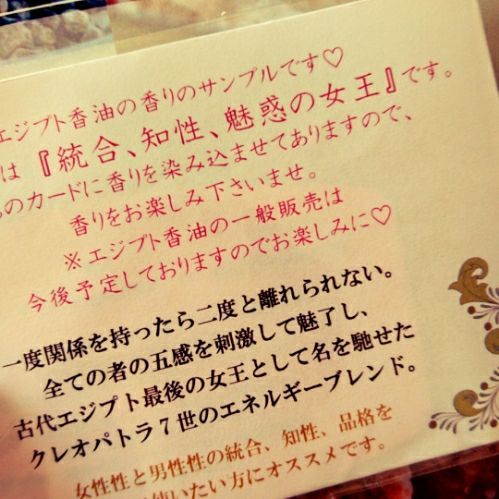 エジプト香油の香りのサンプルです♡
は『統合、知性、魅惑の女王』です。
のカードに香りを染み込ませてありますので、
香りをお楽しみ下さいませ。
※エジプト香油の一般販売は
今後予定しておりますのでお楽しみに♡
一度関係を持ったら二度と離れられない。
全ての者の五感を刺激して魅了し、
古代エジプト最後の女王として名を馳せた
クレオパトラ7世のエネルギーブレンド。
女性性と男性性の統合、知性、品格を
使いたい方にオススメです。